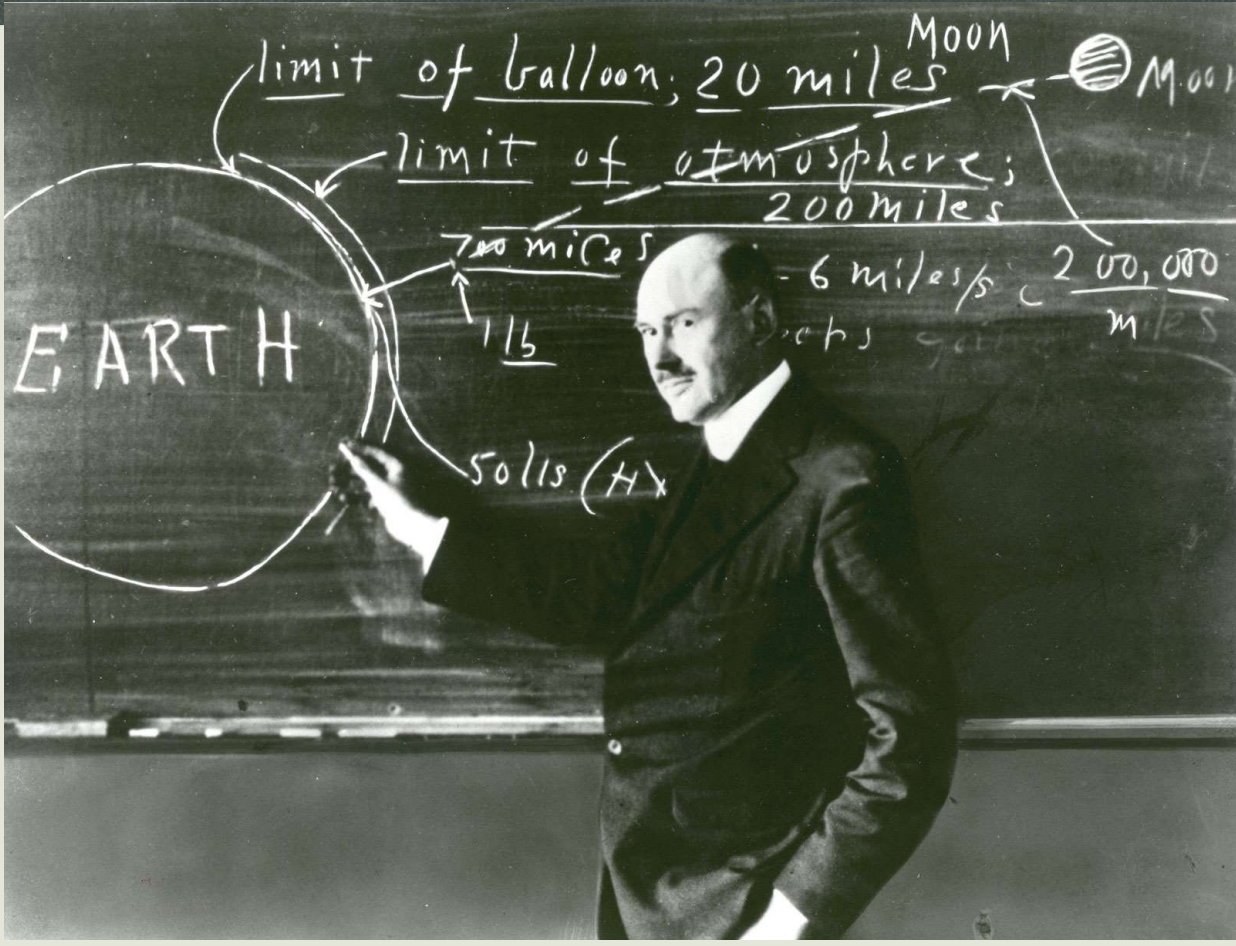 Moon
limit of balloon; 20 miles
Moon
limit of atmosphere;
200 miles
700 miles
6 miles/s
200,000
m
1 lb
EARTH
50 lbs (H)